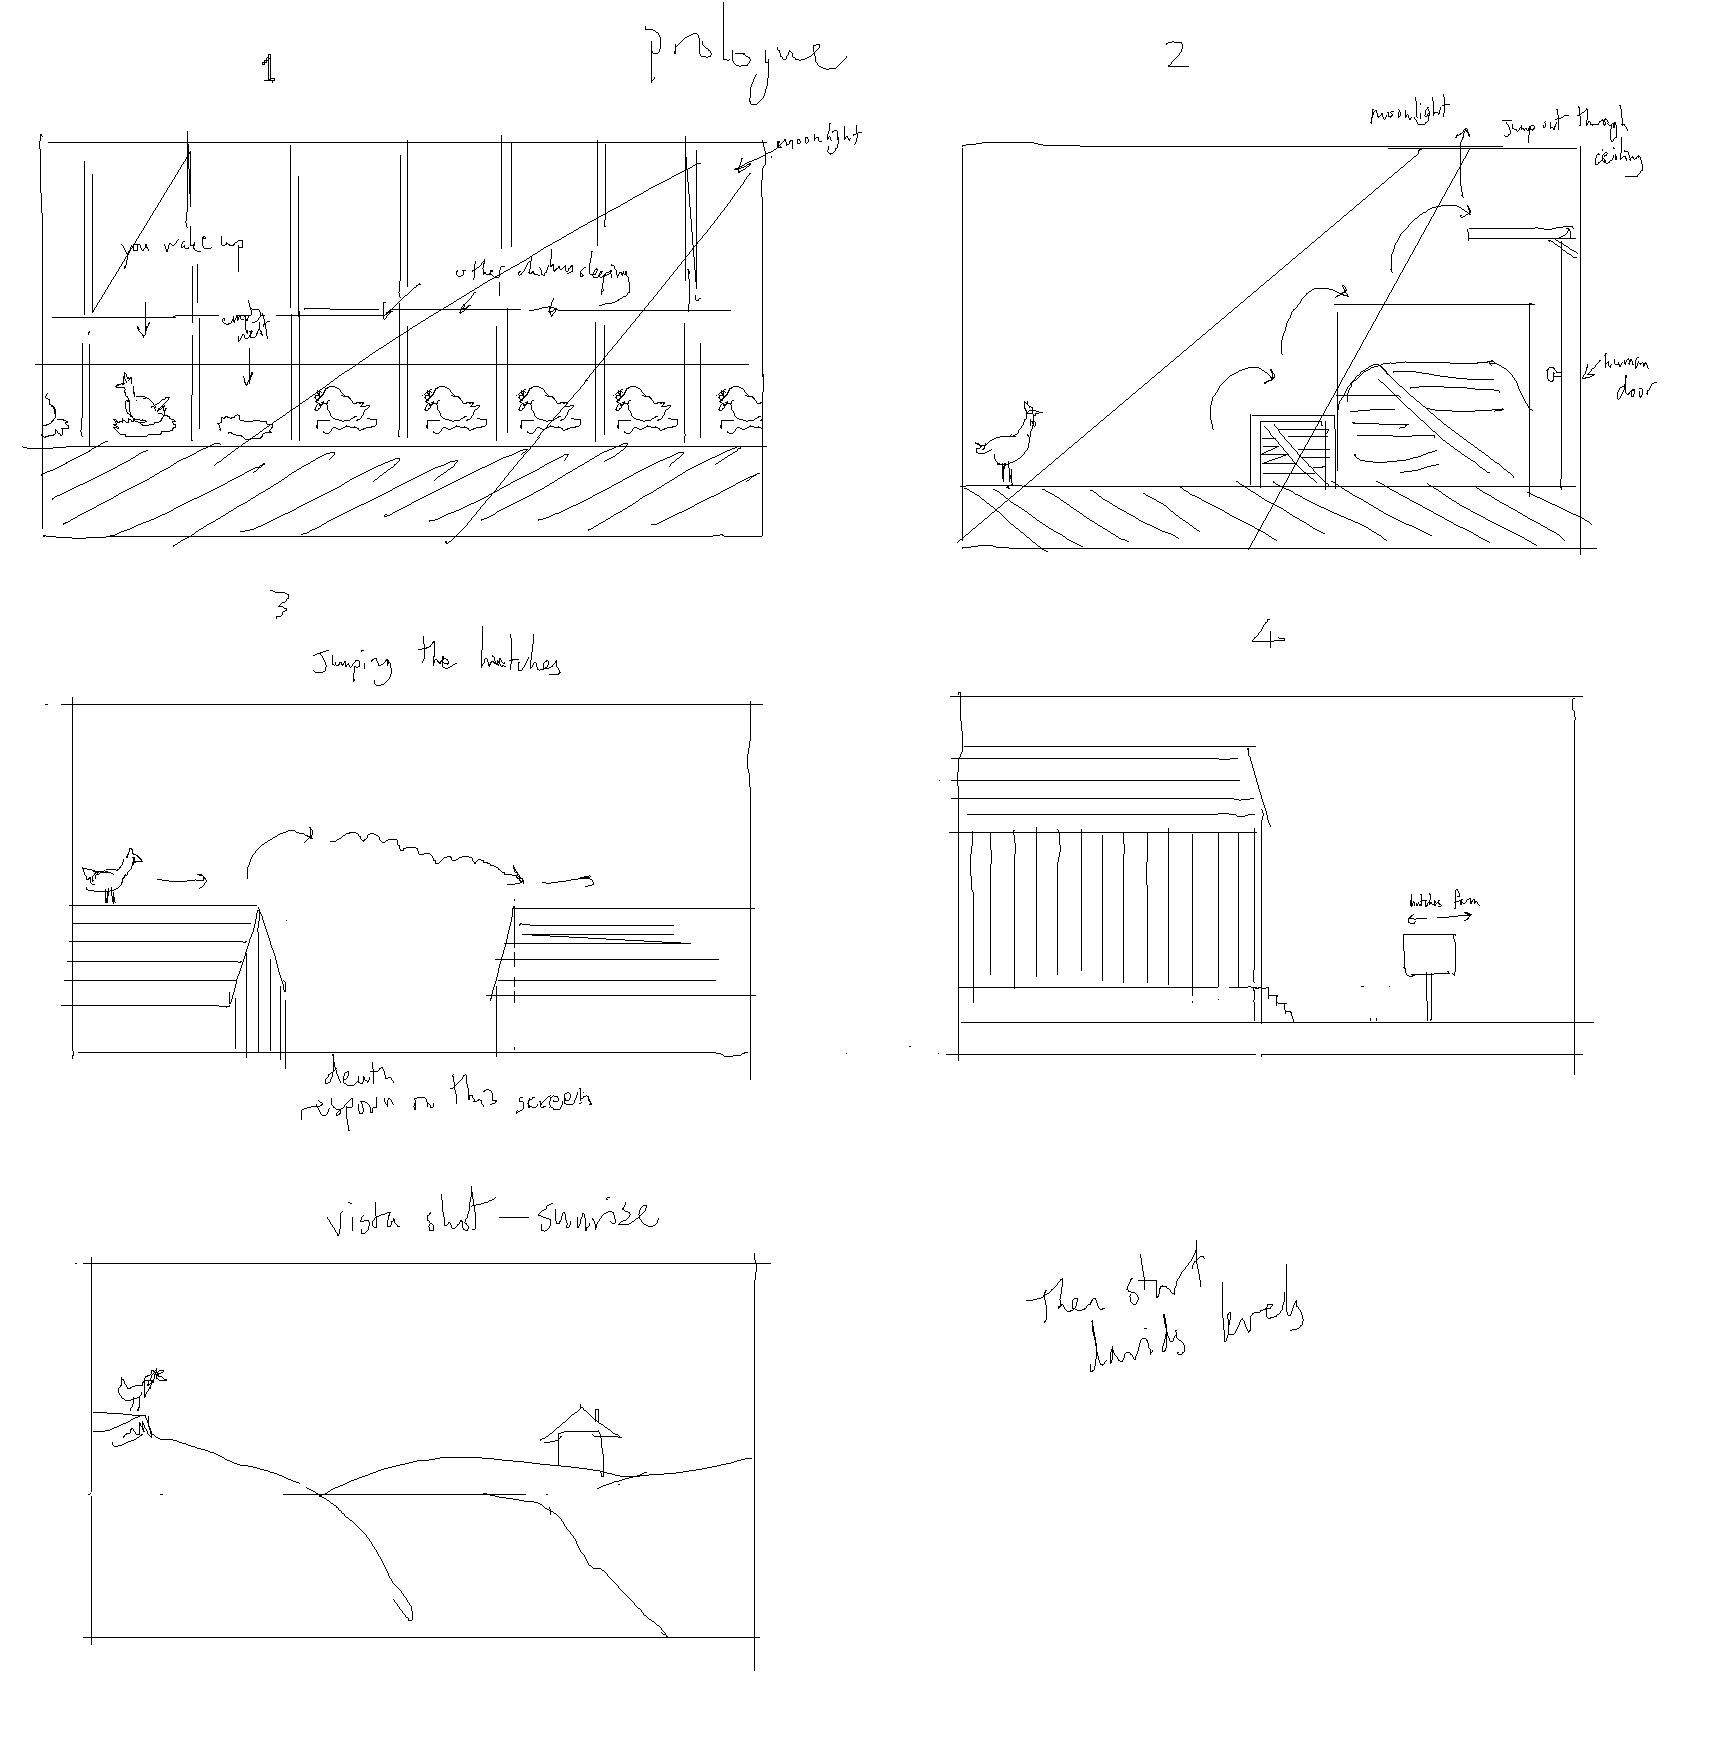 prologue
1
2
moonlight
you wake up
other chickens sleeping
empty
nest
moonlight
Jump out through
ceiling
human
door
3
Jumping the hutches
death
respawn on this screen
4
hutches farm
vista shot - sunrise
Then start
davids levels